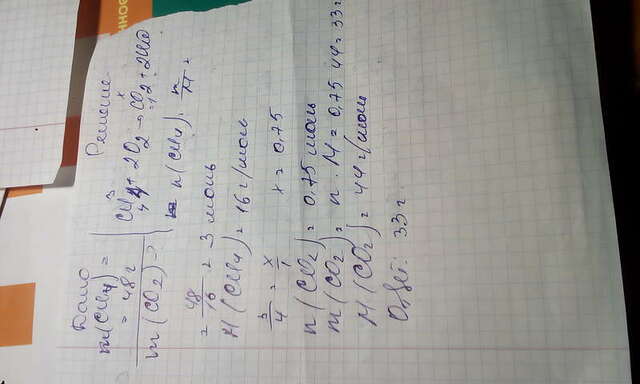 Дано
m(CH4) =
= 48г
m(CO2) - ?
Решение
3 x
CH4 + 2O2 → CO2 + 2H2O
4 =1
n(CH4) = m/M =
= 48/16 = 3 моль
M(CH4) = 16 г/моль
3/4 = x/1 x = 0,75
n(CO2) = 0,75 моль
m(CO2) = n · M = 0,75 · 44 = 33 г
M(CO2) = 44 г/моль
Ответ: 33 г.